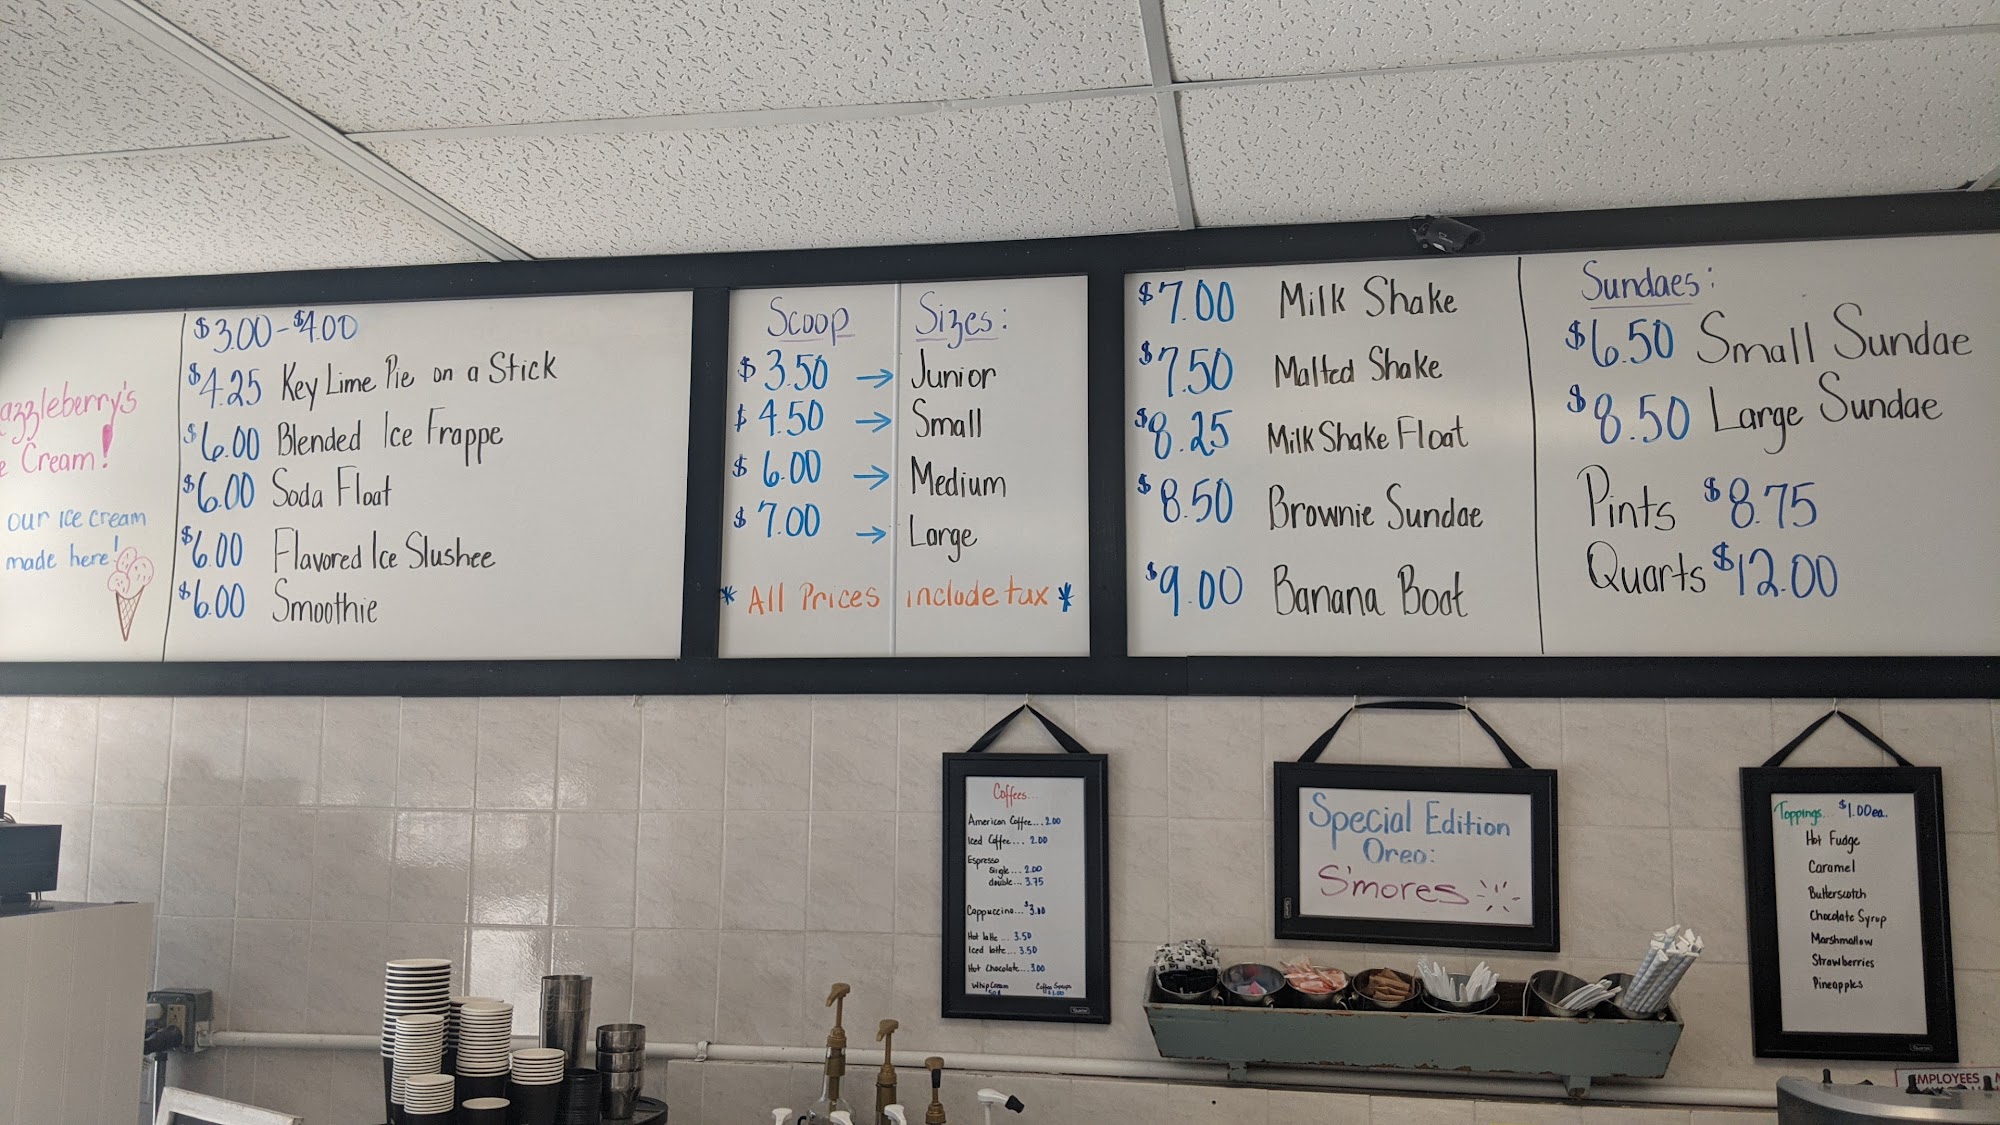 azzleberry's
e Cream!
our ice cream
made here!
$3.00-$4.00
$4.25 Key Lime Pie on a Stick
$6.00 Blended Ice Frappe
$6.00 Soda Float
$6.00 Flavored Ice Slushee
$6.00 Smoothie
Scoop Sizes:
$3.50 → Junior
$4.50 → Small
$6.00 → Medium
$7.00 → Large
* All Prices include tax *
$7.00 Milk Shake
$7.50 Malted Shake
$8.25 Milk Shake Float
$8.50 Brownie Sundae
$9.00 Banana Boat
Sundaes:
$6.50 Small Sundae
$8.50 Large Sundae
Pints $8.75
Quarts $12.00
Coffees...
American Coffee...2.00
Iced Coffee... 2.00
Espresso
single... 2.00
double... 3.75
Cappuccino...$3.00
Hot latte ... 3.50
Iced latte... 3.50
Hot Chocolate...3.00
Whip Cream Coffee Syrups
50¢ $1.00
Special Edition
Oreo:
S'mores
Toppings... $1.00ea.
Hot Fudge
Caramel
Butterscotch
Chocolate Syrup
Marshmallow
Strawberries
Pineapples
EMPLOYEES